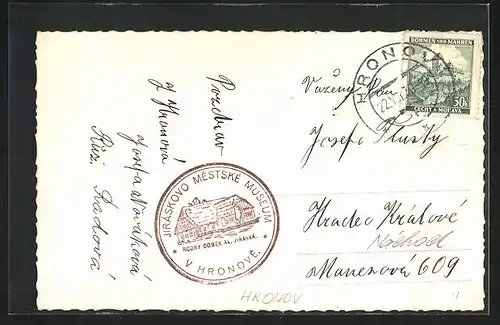 Pozdrav
z Hronova
Josefa Nováková
Růž. Radová
JIRÁSKOVO MĚSTSKÉ MUSEUM
RODNÝ DOMEK AL. JIRÁSKA.
V HRONOVĚ.
HRONOV
BÖHMEN UND MÄHREN
50h
ČECHY A MORAVA
Vážený Pan
Josef
Hradec Králové
Náchod
Manesová 609
HRONOV